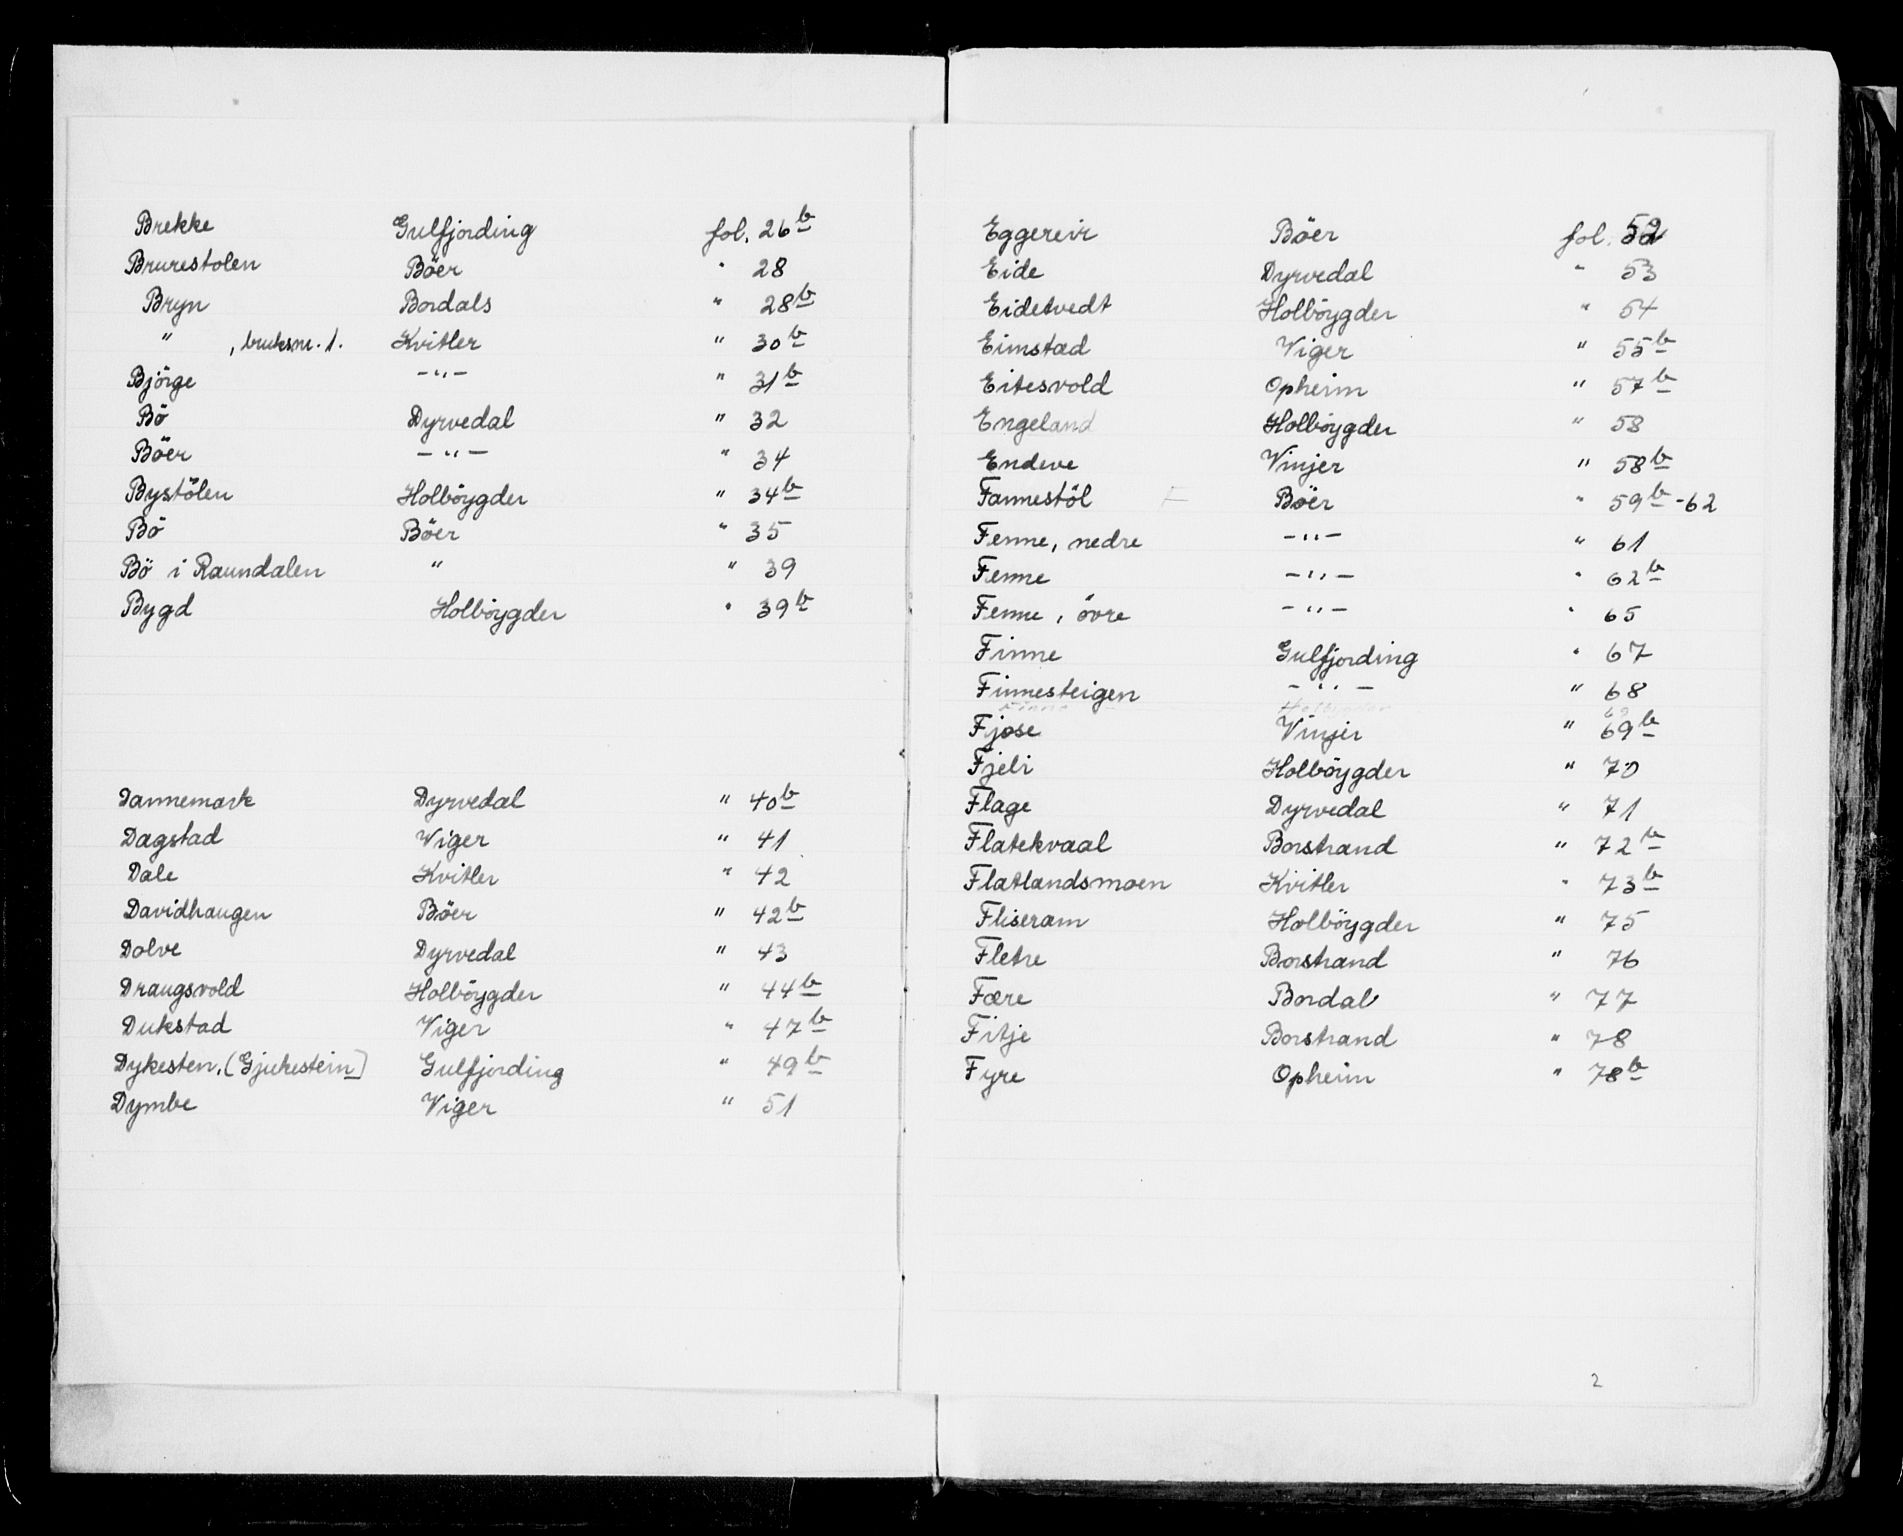 Brekke Gulfjording fol. 26b
Brurestolen Böer " 28
Bryn Bordals " 28b
" , bruksnr. 1. Kvitler " 30b
Bjørge -"- " 31b
Bö Dyrvedal " 32
Böer -"- " 34
Bystölen Holböygder " 34b
Bö Böer " 35
Bö i Raundalen " " 39
Bygd Holböygder " 39b
Dannemark Dyrvedal " 40b
Dagstad Viger " 41
Dale Kvitler " 42
Davidhaugen Böer " 42b
Dolve Dyrvedal " 43
Draugsvold Holböygder " 44b
Dukstad Viger " 47b
Dykesten, (Gjukestein) Gulfjording " 49b
Dymbe Viger " 51
Eggereir Böer fol. 52
Eide Dyrvedal " 53
Eidetvedt Holböygder " 54
Eimstad Viger " 55b
Eitesvold Opheim " 57b
Engeland Holböygder " 58
Endeve Vinjer " 58b
Fannestöl F Böer " 59b-62
Fenne, nedre -"- " 61
Fenne -"- " 62b
Fenne, övre -"- " 65
Finne Gulfjording " 67
Finnesteigen -"- " 68
Fjose Vinjer " 69b
Fjeli Holböygder " 70
Flage Dyrvedal " 71
Flatekvaal Borstrand " 72b
Flatlandsmoen Kvitler " 73b
Fliseram Holböygder " 75
Fletre Borstrand " 76
Fære Bordal " 77
Fitje Borstrand " 78
Fyre Opheim " 78b
2